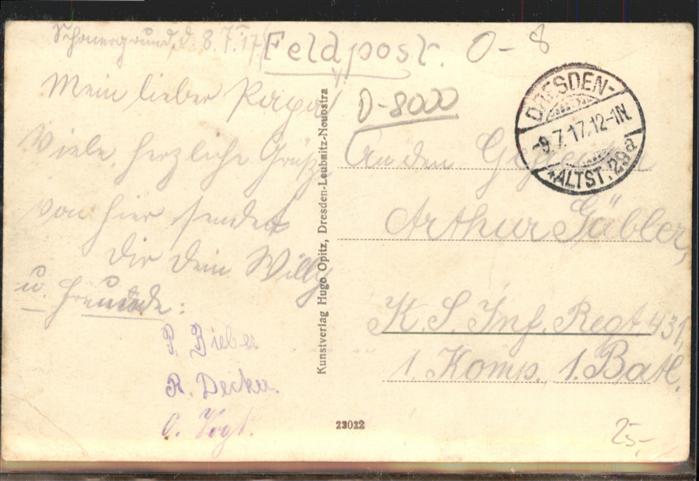 Schonergrund, d. 8. 7. 17.
Feldpost.
O-8
D-8000
Mein lieber Papa!
Viele herzliche Grüße
von hier sendet
Dir Dein Willy
u. Freunde:
P. Bieber
R. Decker.
O. Vogt.
Kunstverlag Hugo Opitz, Dresden-Leubnitz-Neuostra
DRESDEN-
-9.7.17.12-1N.
*ALTST. 29a
An den
Arthur Gäbler,
K. S. Inf. Regt 431,
1. Komp., 1. Batl.
23022
25,-